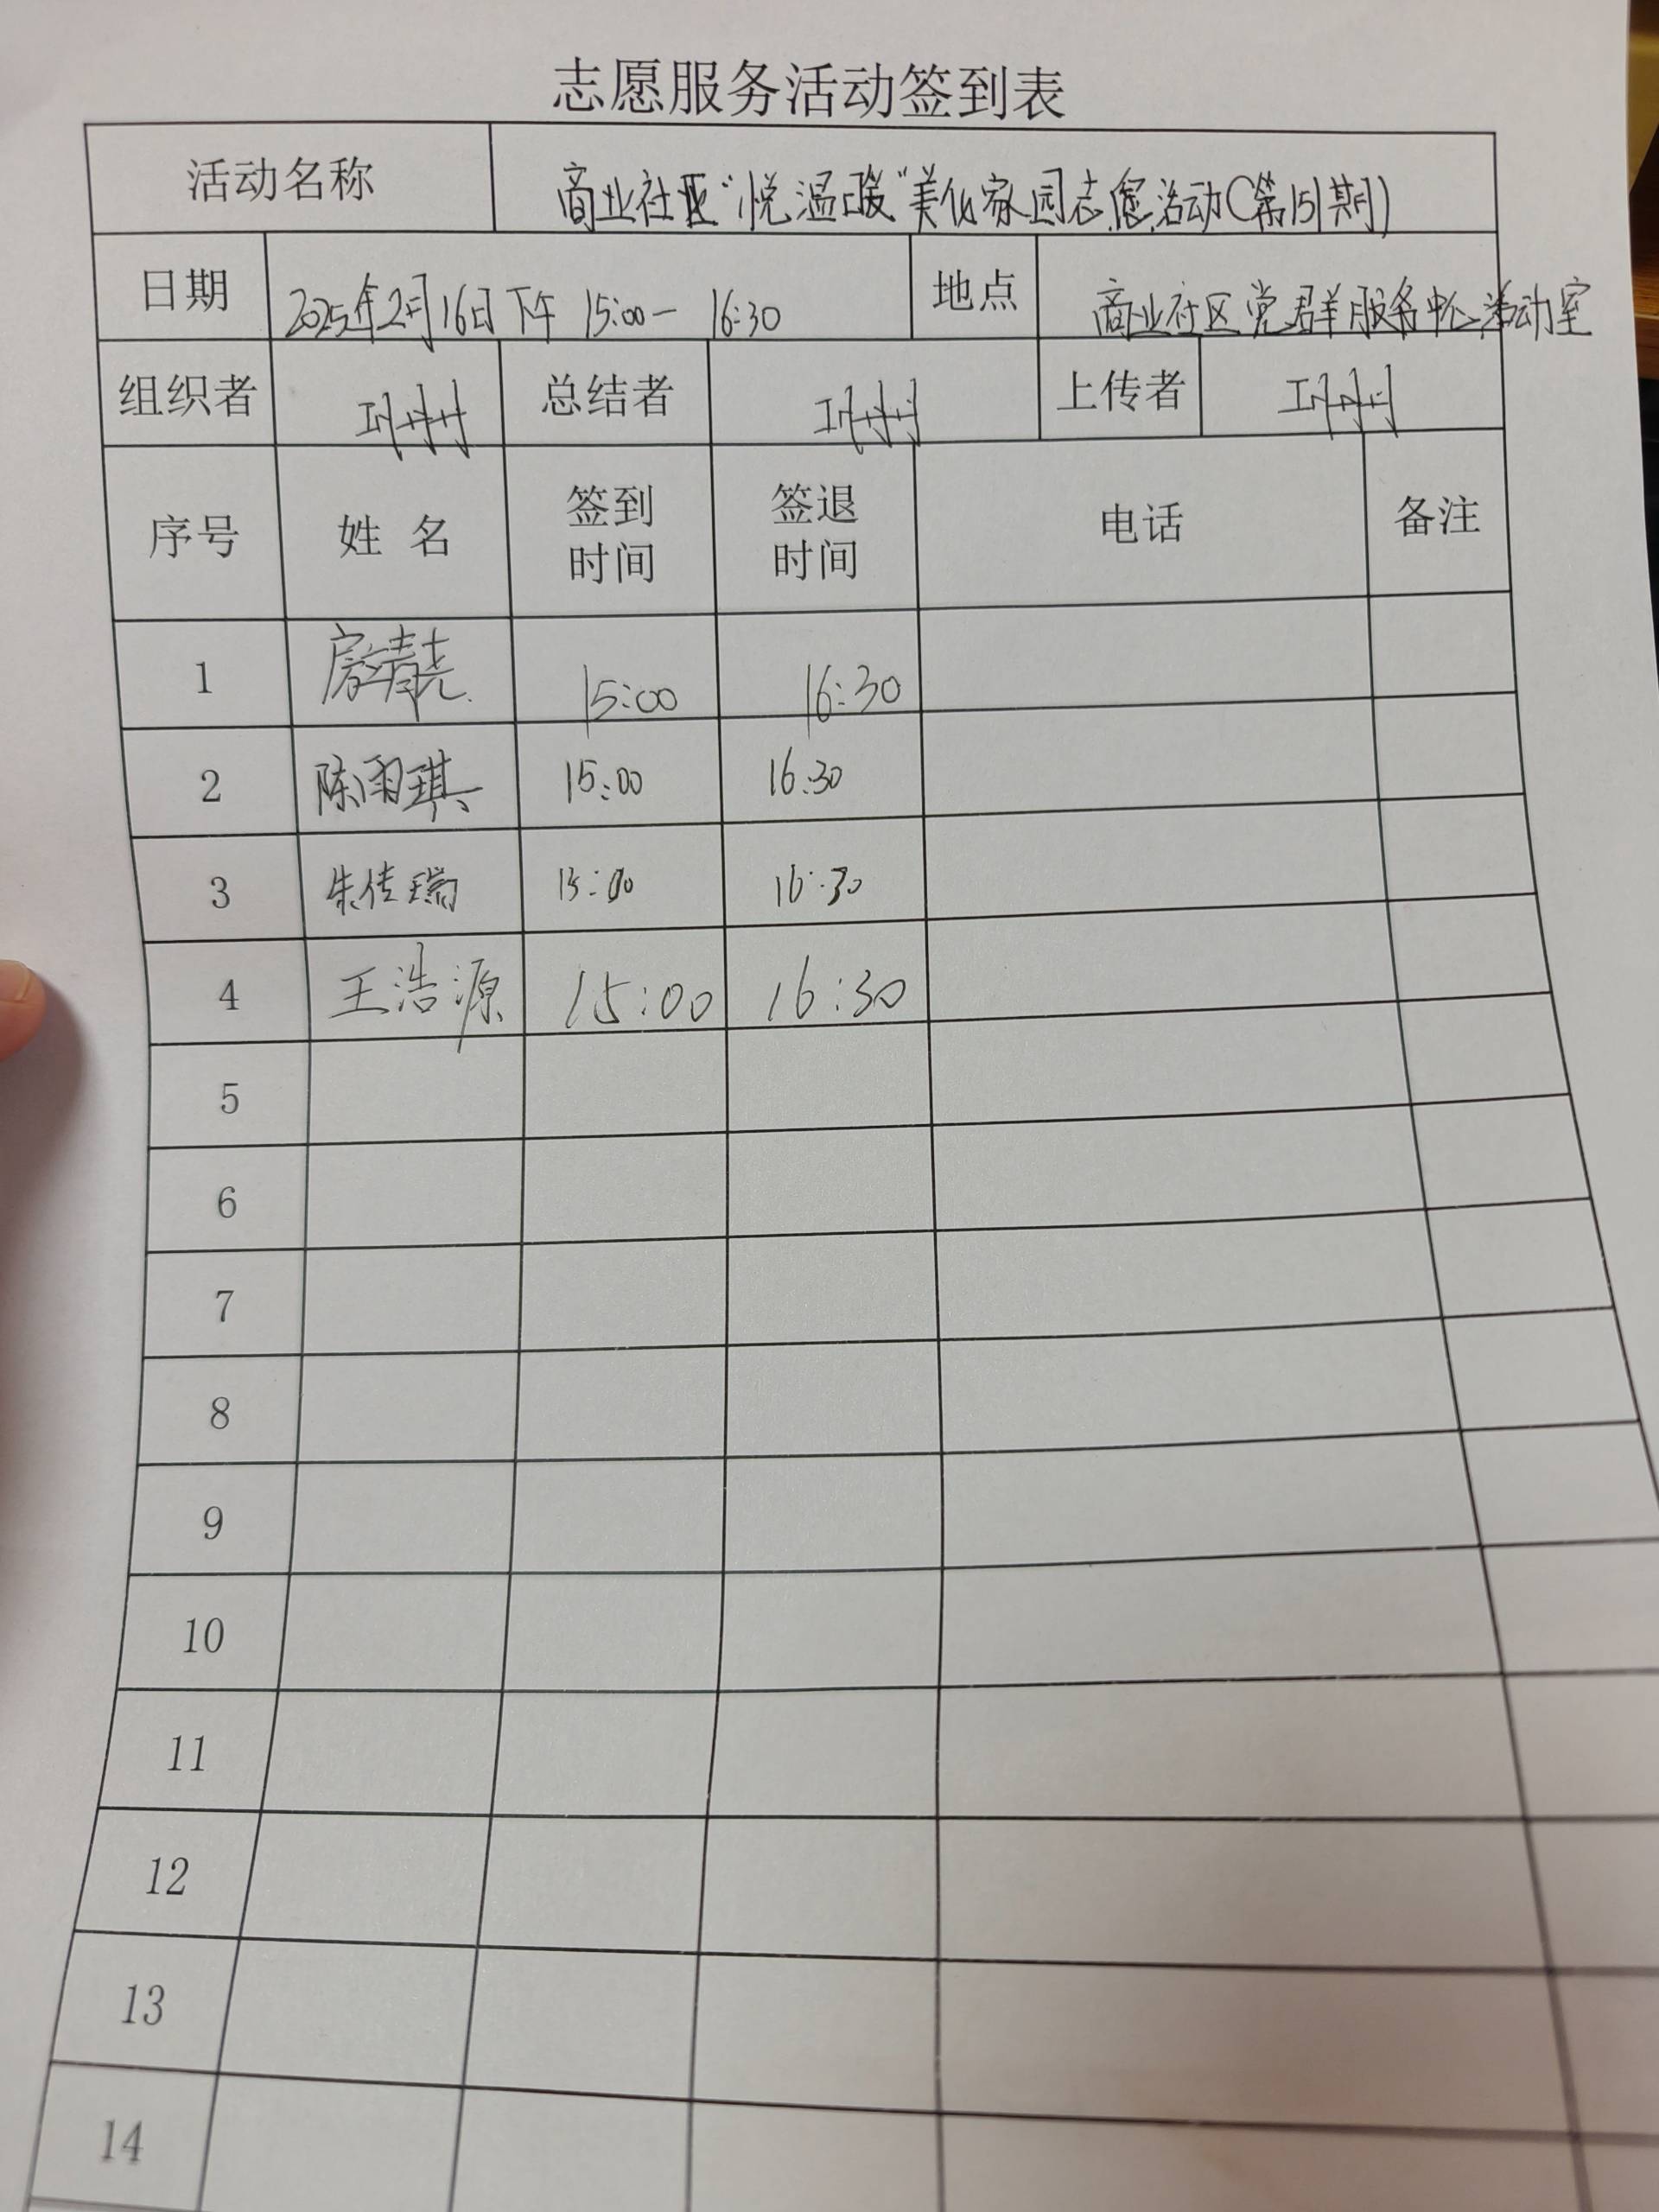 志愿服务活动签到表
活动名称 商业社区“悦温暖”美化家园志愿活动(第151期)
日期 2025年2月16日下午 15:00-16:30 地点 商业社区党群服务中心活动室
组织者 总结者 上传者
序号 姓名 签到时间 签退时间 电话 备注
1 15:00 16:30
2 陈雨琪 15:00 16:30
3 朱佳瑞 15:00 16:30
4 王浩源 15:00 16:30
5
6
7
8
9
10
11
12
13
14